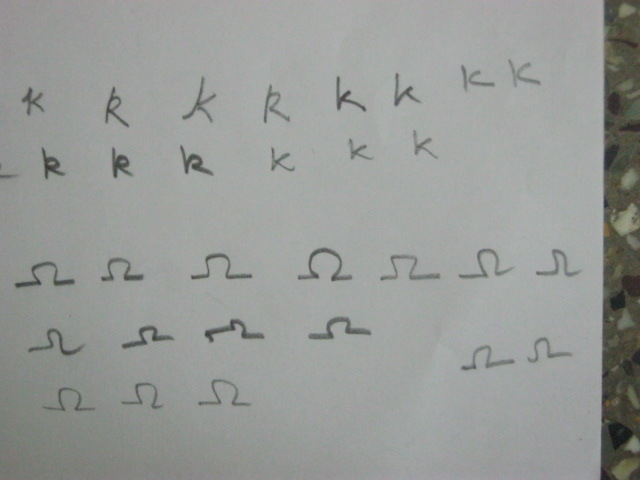 k k k k k k k k
k k k k k k
Ω Ω Ω Ω Ω Ω Ω
Ω Ω Ω Ω Ω Ω
Ω Ω Ω